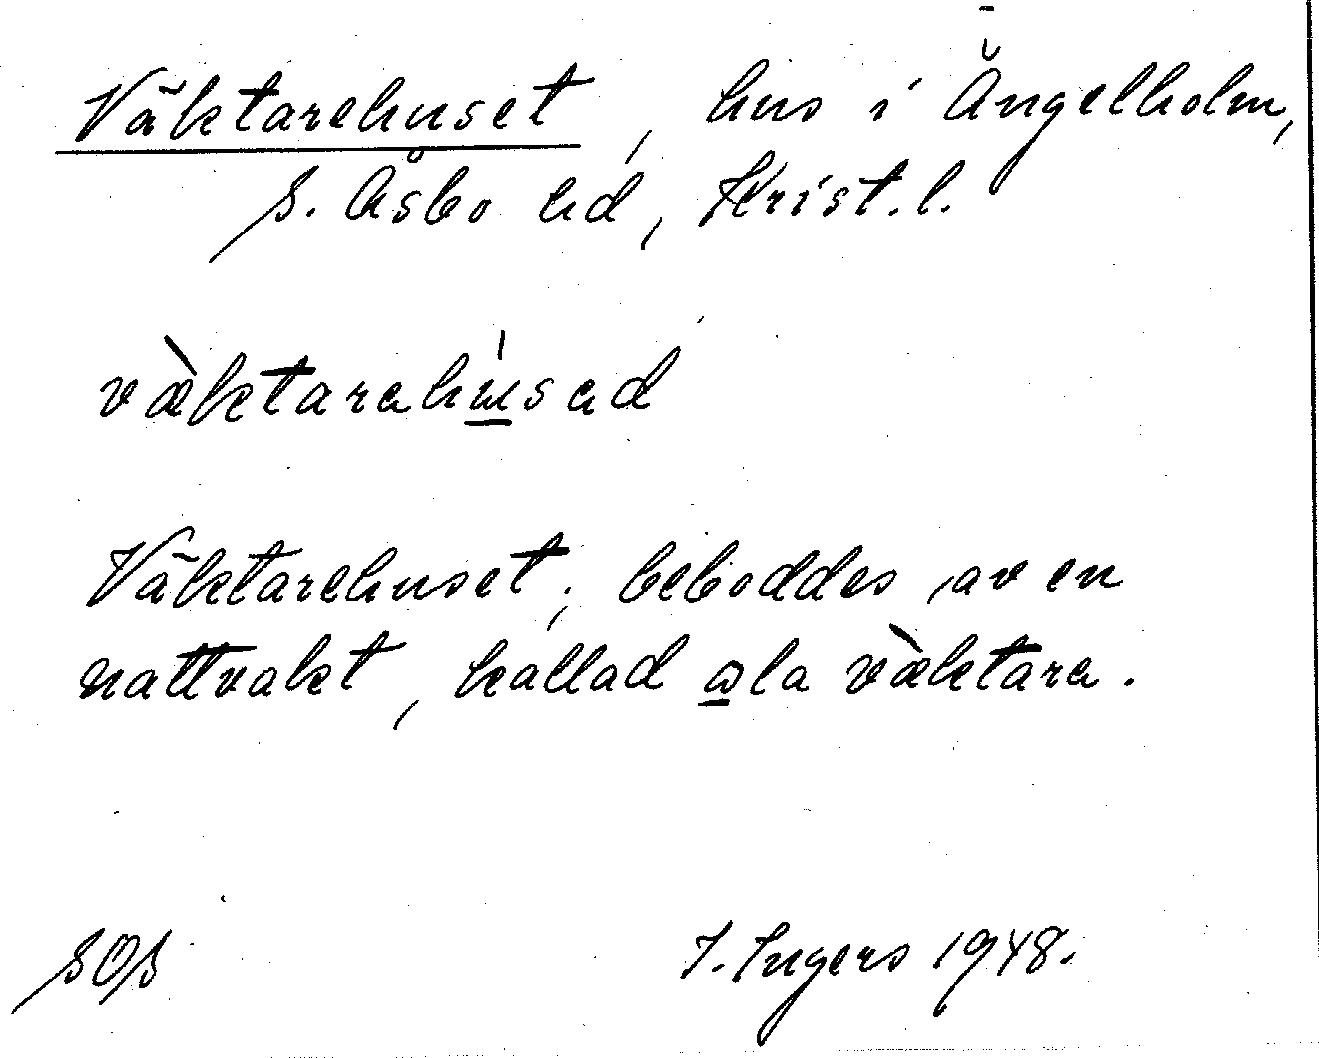 Väktarehuset, hus i Ängelholm,
S. Åsbo hd, Krist. l.
væ̀ktarahú̲sad
Väktarehuset; beboddes av en
nattvakt, kallad ɷ̲la væ̀ktara.
SOS
I. Ingers 1948.